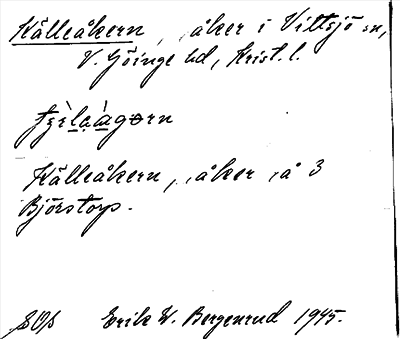 Källeåkern, åker i Vittsjö sn,
V. Göinge hd, Krist. l.
Källeåkern, åker å 3
Björstorp.
SOS Erik W. Bergenrud 1945.